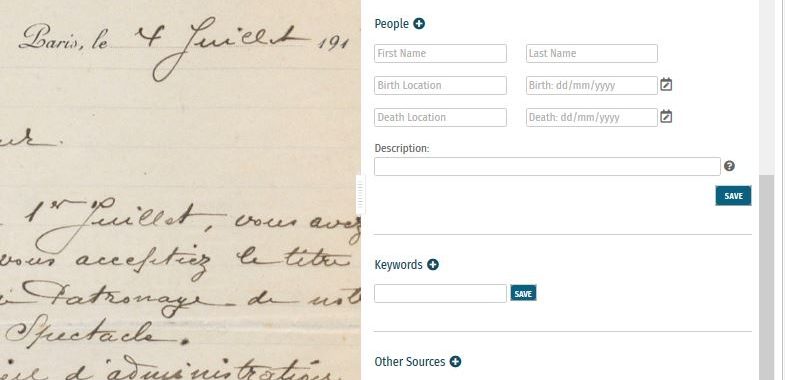 Paris, le 4 Juillet 191
ur.
1er Juillet, vous avez
vous acceptiez le titre
Patronage de not
Spectacle.
d'administration
People
First Name
Last Name
Birth Location
Birth: dd/mm/yyyy
Death Location
Death: dd/mm/yyyy
Description:
SAVE
Keywords
SAVE
Other Sources